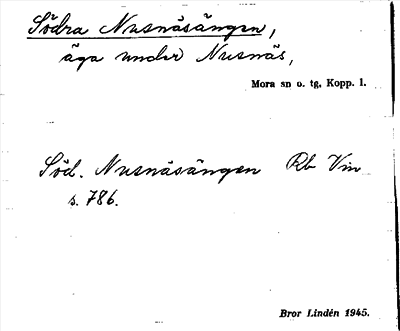 Södra Nusnäsängen,
äga under Nusnäs,
Mora sn o. tg, Kopp. l.
Söd. Nusnäsängen Rb Vm
s. 786.
Bror Lindén 1945.